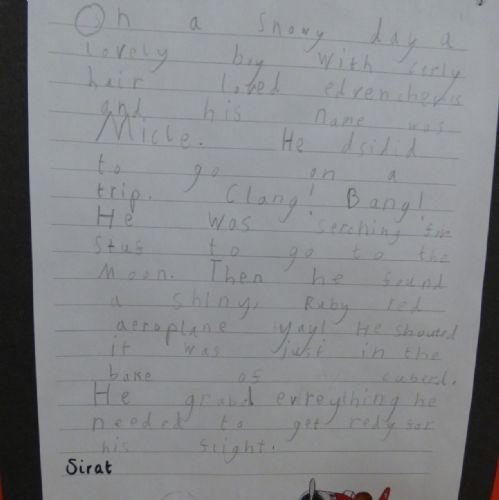 On a snowy day a
lovely boy with curly
hair loved edvencheris
and his name was
Micle. He dsidid
to go on a
trip. Clang! Bang!
He was serching for
stuf to go to the
Moon. Then he found
a shiny, Ruby red
aeroplane yay! He shouted
it was just in the
bake of cuberd.
He grabd evreything he
needed to get redy for
his flight.
Sirat